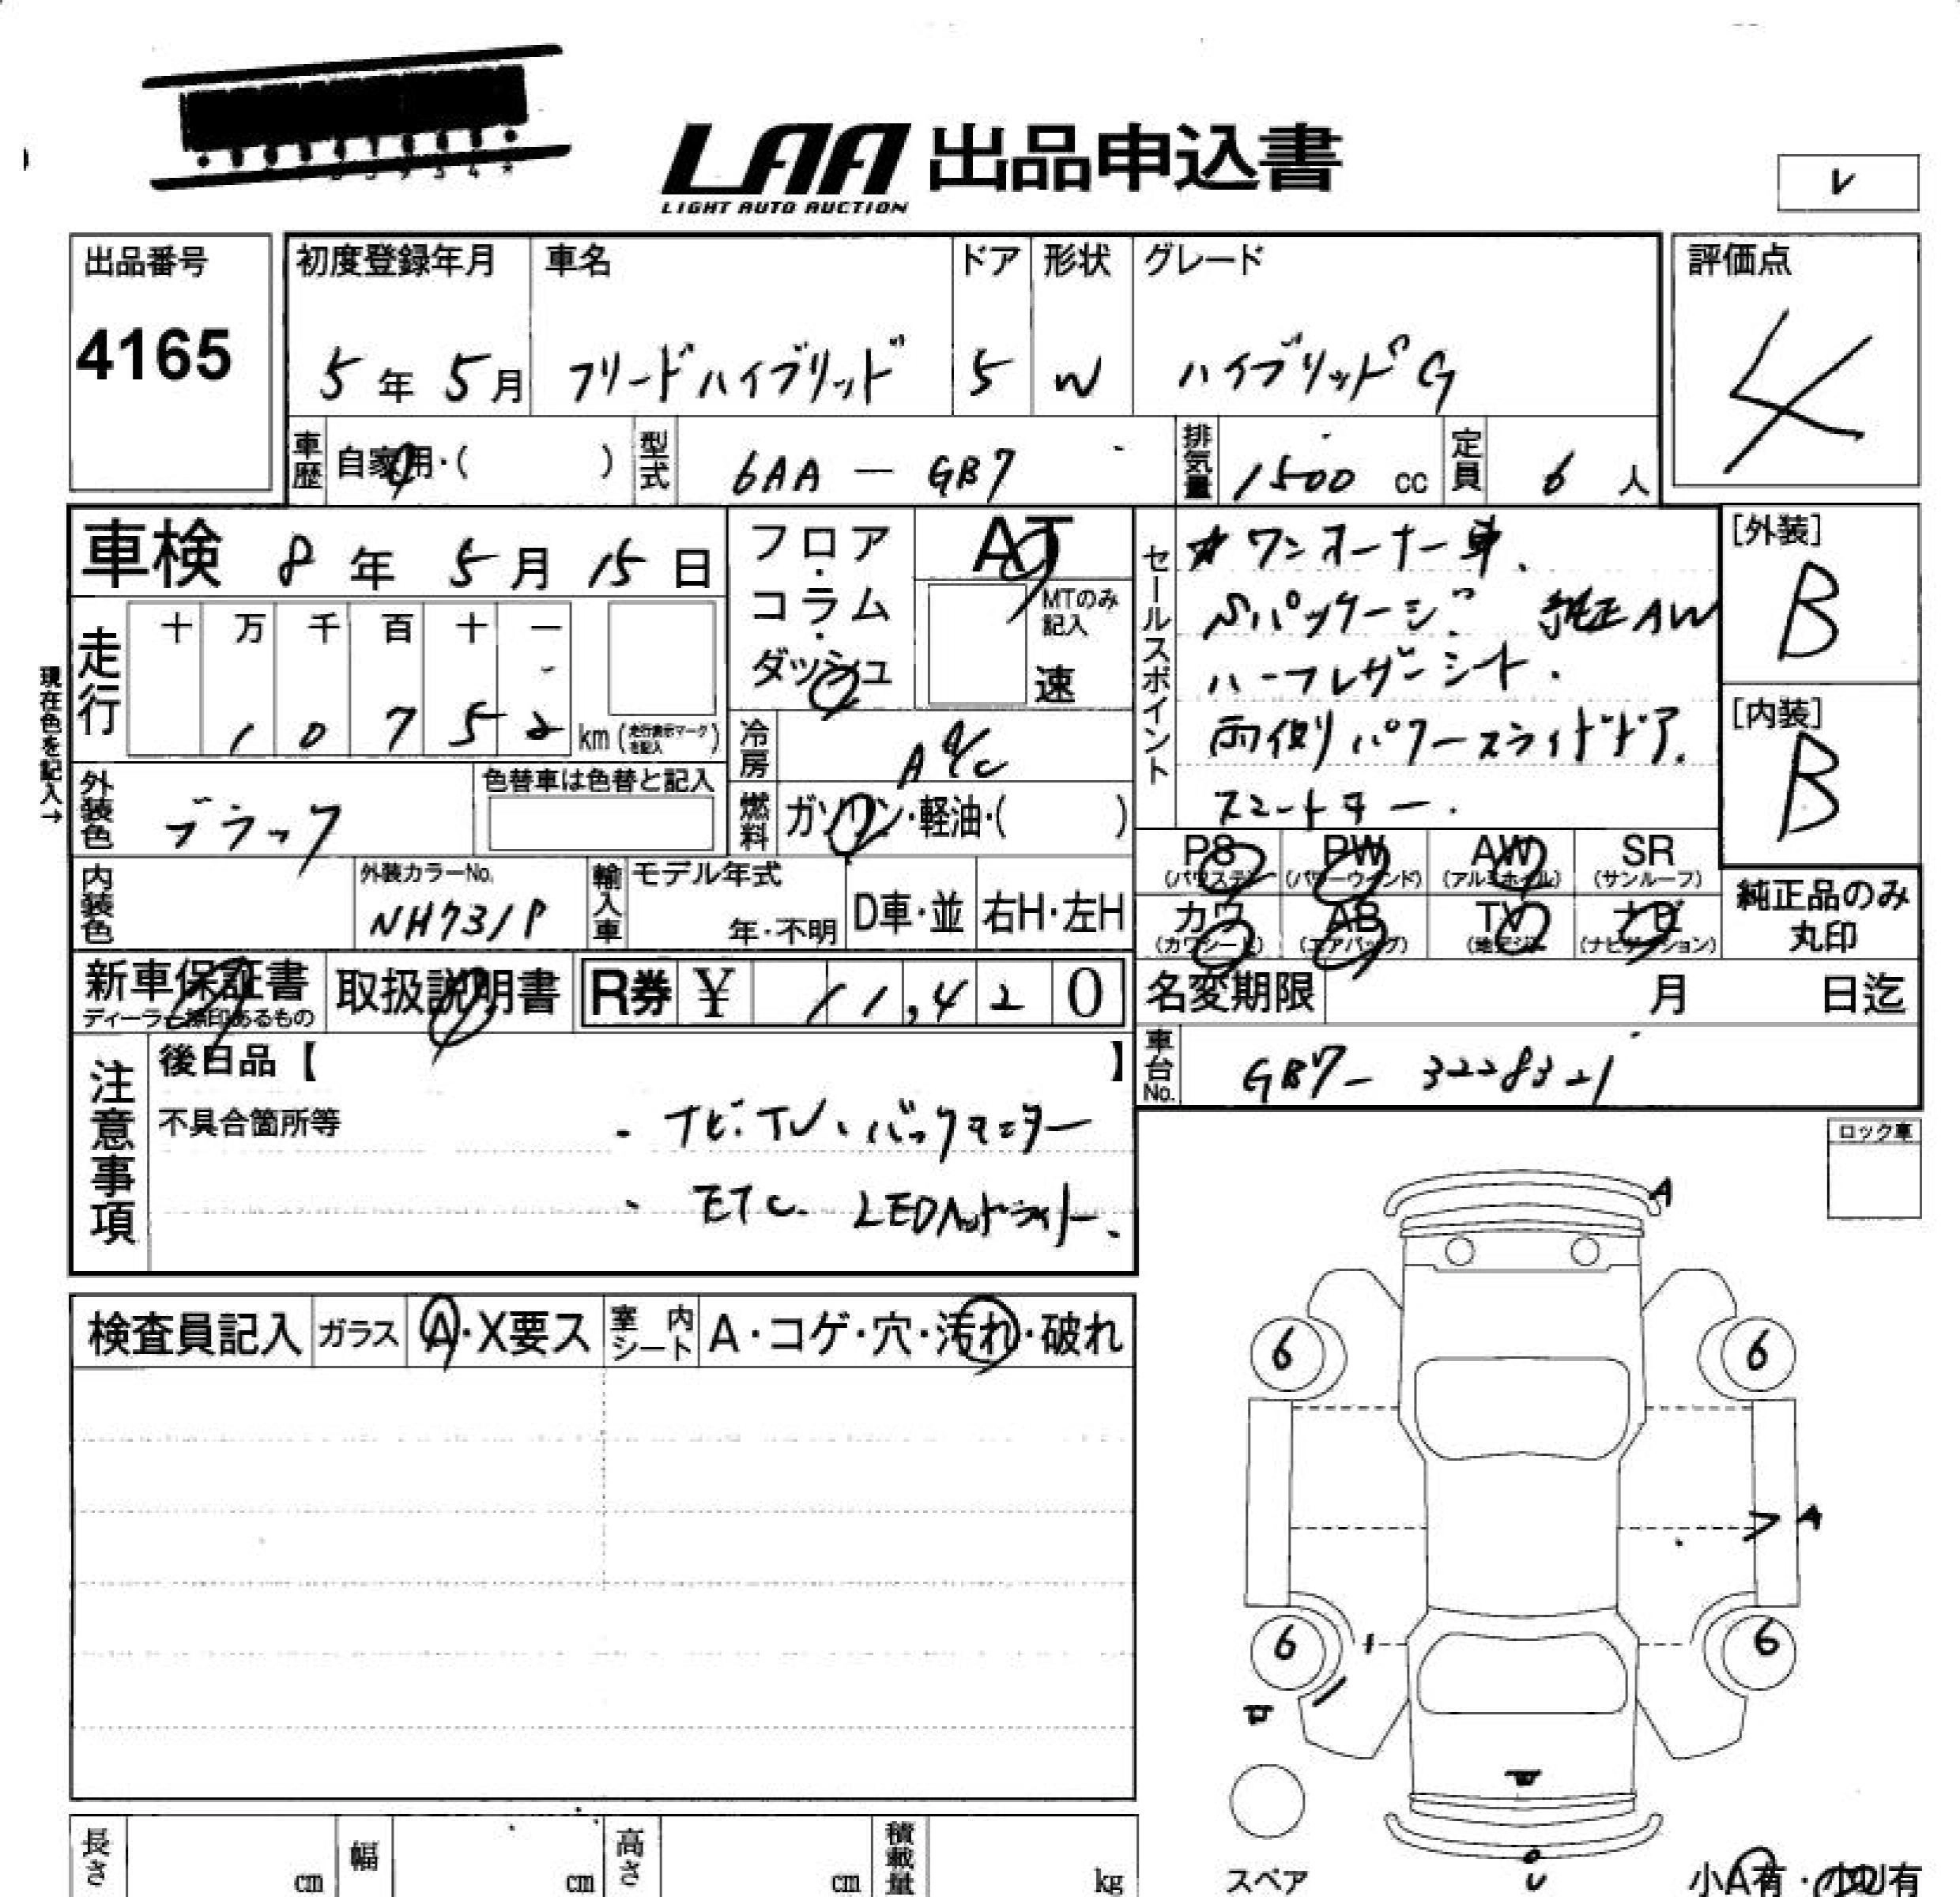 LAA 出品申込書
LIGHT AUTO AUCTION
レ
出品番号
4165
初度登録年月
5年 5月
車名
フリードハイブリッド
ドア
5
形状
W
グレード
ハイブリッドG
評価点
4
車歴 自家用・( )
型式 6AA - GB7
排気量 1500 cc
定員 6 人
車検 8年 5月 15日
フロア・コラム・ダッシュ
AT
MTのみ記入
速
セールスポイント
ワンオーナー車.
Sパッケージ 純正AW
ハーフレザーシート.
両側パワースライドドア.
スマートキー.
[外装]
B
[内装]
B
現在色を記入→
走行
十 万 千 百 十 一
1 0 7 5 2 km (走行表示マークを記入)
冷房 AA/C
燃料 ガソリン・軽油・( )
外装色 ブラック
色替車は色替と記入
内装色
外装カラーNo.
NH731P
輸入車
モデル年式
年・不明
D車・並
右H・左H
PS (パワステ)
PW (パワーウインド)
AW (アルミホイル)
SR (サンルーフ)
カワ (カワシート)
AB (エアバッグ)
TV (地デジ)
ナビ (ナビゲーション)
純正品のみ丸印
新車保証書
ディーラー捺印あるもの
取扱説明書
R券 ¥ 11,420
名変期限 月 日迄
車台No. GB7-3228321
注意事項
後日品【 】
不具合箇所等
・ナビ.TV、バックモニター
・ETC. LEDヘッドライト.
ロック車
検査員記入
ガラス A・X要ス
室内シート A・コゲ・穴・汚れ・破れ
A
6 6
A
6 6
長さ cm
幅 cm
高さ cm
積載量 kg
スペア
小A有・小U有